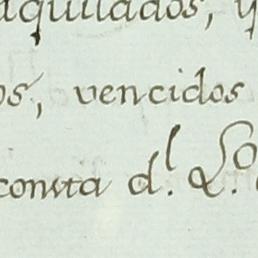 aquilados, y
os, vencidos
consta d.l L.